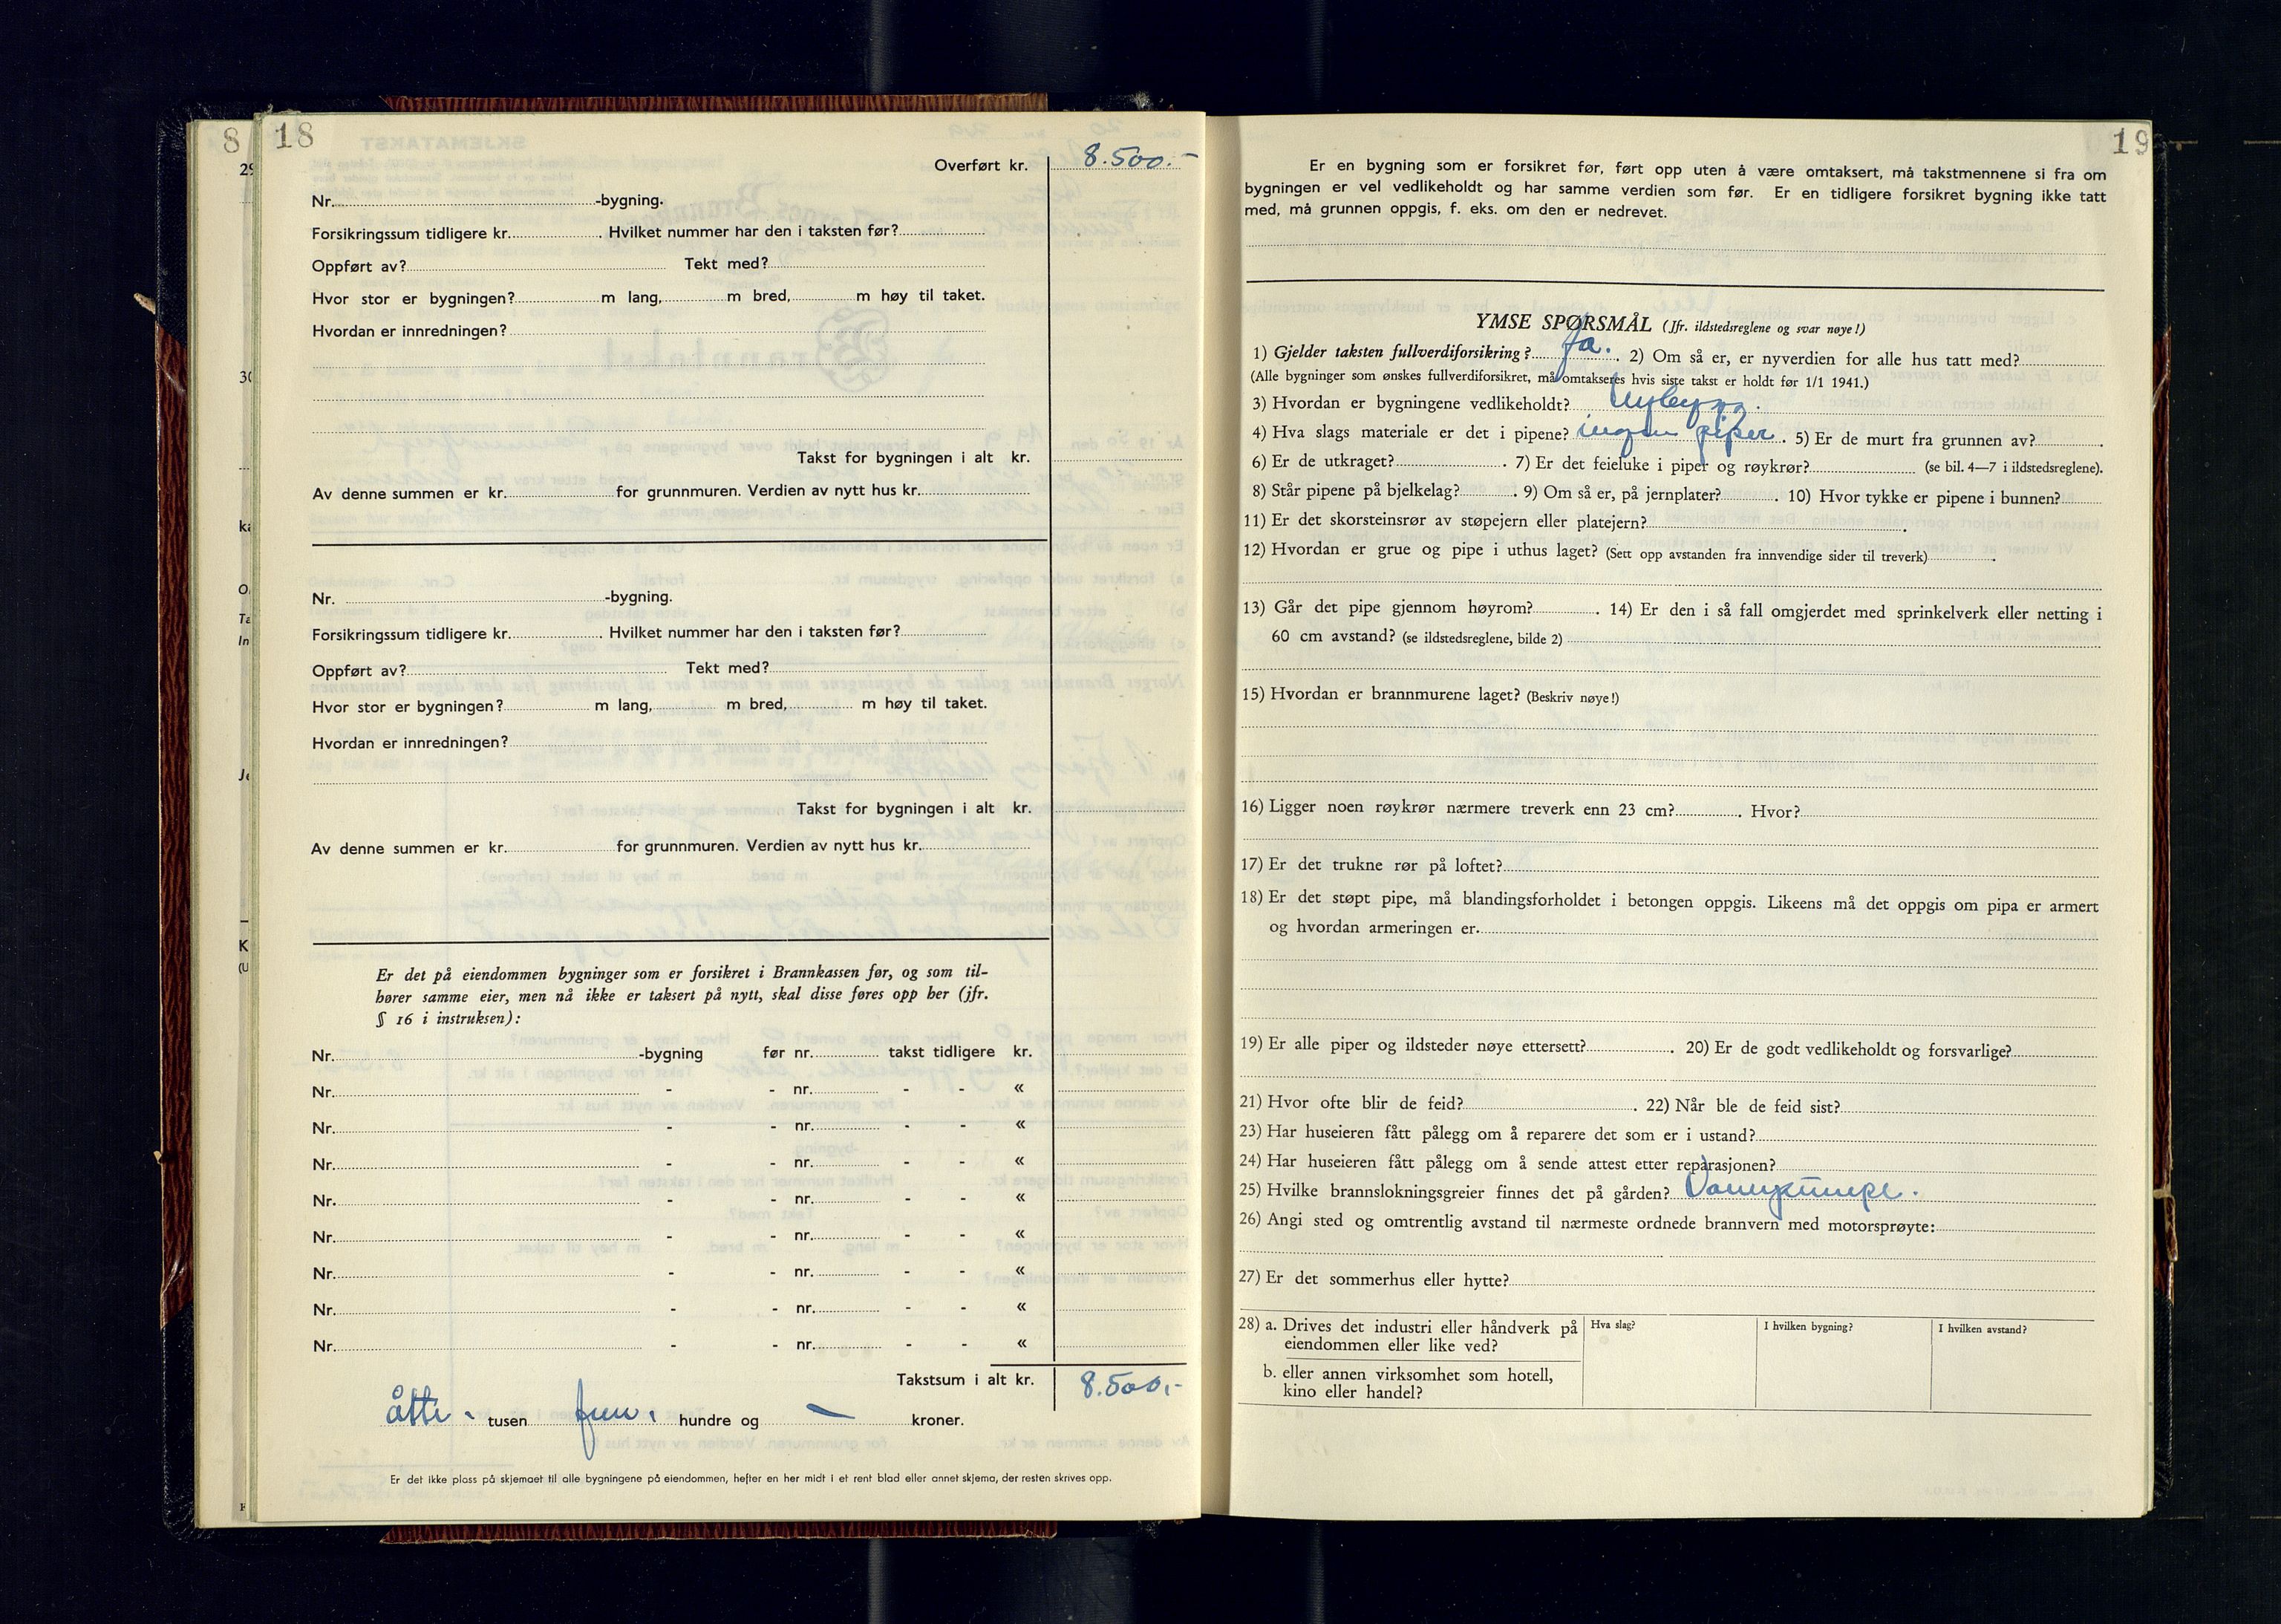 8
29
30
ka
K
(U
18
Overført kr. 8.500.-
Nr. -bygning.
Forsikringssum tidligere kr. . Hvilket nummer har den i taksten før?
Oppført av? Tekt med?
Hvor stor er bygningen? m lang, m bred, m høy til taket.
Hvordan er innredningen?
Takst for bygningen i alt kr.
Av denne summen er kr. for grunnmuren. Verdien av nytt hus kr.
Nr. -bygning.
Forsikringssum tidligere kr. . Hvilket nummer har den i taksten før?
Oppført av? Tekt med?
Hvor stor er bygningen? m lang, m bred, m høy til taket.
Hvordan er innredningen?
Takst for bygningen i alt kr.
Av denne summen er kr. for grunnmuren. Verdien av nytt hus kr.
Er det på eiendommen bygninger som er forsikret i Brannkassen før, og som til-
hører samme eier, men nå ikke er taksert på nytt, skal disse føres opp her (jfr.
§ 16 i instruksen):
Nr. -bygning før nr. takst tidligere kr.
Nr. - - nr. - - «
Nr. - - nr. - - «
Nr. - - nr. - - «
Nr. - - nr. - - «
Nr. - - nr. - - «
Nr. - - nr. - - «
Nr. - - nr. - - «
Nr. - - nr. - - «
Takstsum i alt kr. 8.500,-
åtte - tusen fem, hundre og — kroner.
Er det ikke plass på skjemaet til alle bygningene på eiendommen, hefter en her midt i et rent blad eller annet skjema, der resten skrives opp.
19
Er en bygning som er forsikret før, ført opp uten å være omtaksert, må takstmennene si fra om
bygningen er vel vedlikeholdt og har samme verdien som før. Er en tidligere forsikret bygning ikke tatt
med, må grunnen oppgis, f. eks. om den er nedrevet.
YMSE SPØRSMÅL (Jfr. ildstedsreglene og svar nøye!)
1) Gjelder taksten fullverdiforsikring? Ja. . 2) Om så er, er nyverdien for alle hus tatt med?
(Alle bygninger som ønskes fullverdiforsikret, må omtakseres hvis siste takst er holdt før 1/1 1941.)
3) Hvordan er bygningene vedlikeholdt? Nybygg.
4) Hva slags materiale er det i pipene? ingen piper . 5) Er de murt fra grunnen av? .
6) Er de utkraget? . 7) Er det feieluke i piper og røykrør? (se bil. 4—7 i ildstedsreglene).
8) Står pipene på bjelkelag? . 9) Om så er, på jernplater? . 10) Hvor tykke er pipene i bunnen?
11) Er det skorsteinsrør av støpejern eller platejern? .
12) Hvordan er grue og pipe i uthus laget? (Sett opp avstanden fra innvendige sider til treverk) .
13) Går det pipe gjennom høyrom? . 14) Er den i så fall omgjerdet med sprinkelverk eller netting i
60 cm avstand? (se ildstedsreglene, bilde 2)
15) Hvordan er brannmurene laget? (Beskriv nøye!)
16) Ligger noen røykrør nærmere treverk enn 23 cm? . Hvor?
17) Er det trukne rør på loftet?
18) Er det støpt pipe, må blandingsforholdet i betongen oppgis. Likeens må det oppgis om pipa er armert
og hvordan armeringen er.
19) Er alle piper og ildsteder nøye ettersett? . 20) Er de godt vedlikeholdt og forsvarlige?
21) Hvor ofte blir de feid? . 22) Når ble de feid sist?
23) Har huseieren fått pålegg om å reparere det som er i ustand?
24) Har huseieren fått pålegg om å sende attest etter reparasjonen?
25) Hvilke brannslokningsgreier finnes det på gården? Vannpumpe.
26) Angi sted og omtrentlig avstand til nærmeste ordnede brannvern med motorsprøyte:
27) Er det sommerhus eller hytte?
28) a. Drives det industri eller håndverk på
eiendommen eller like ved?
b. eller annen virksomhet som hotell,
kino eller handel?
Hva slag?
I hvilken bygning?
I hvilken avstand?